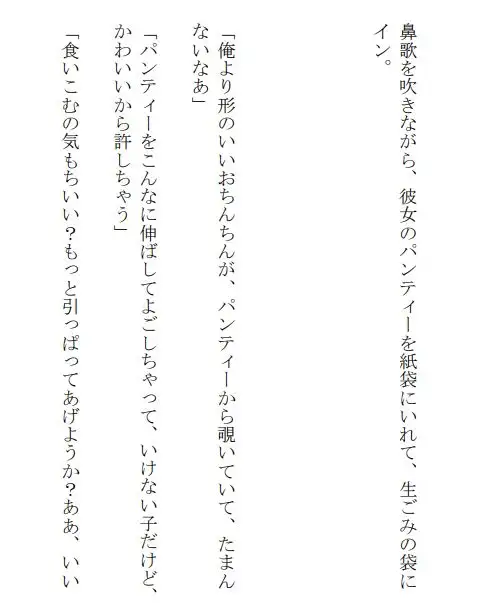 鼻歌を吹きながら、彼女のパンティーを紙袋にいれて、生ごみの袋に
イン。
「俺より形のいいおちんちんが、パンティーから覗いていて、たまん
ないなあ」
「パンティーをこんなに伸ばしてよごしちゃって、いけない子だけど、
かわいいから許しちゃう」
「食いこむの気もちいい？もっと引っぱってあげようか？ああ、いい